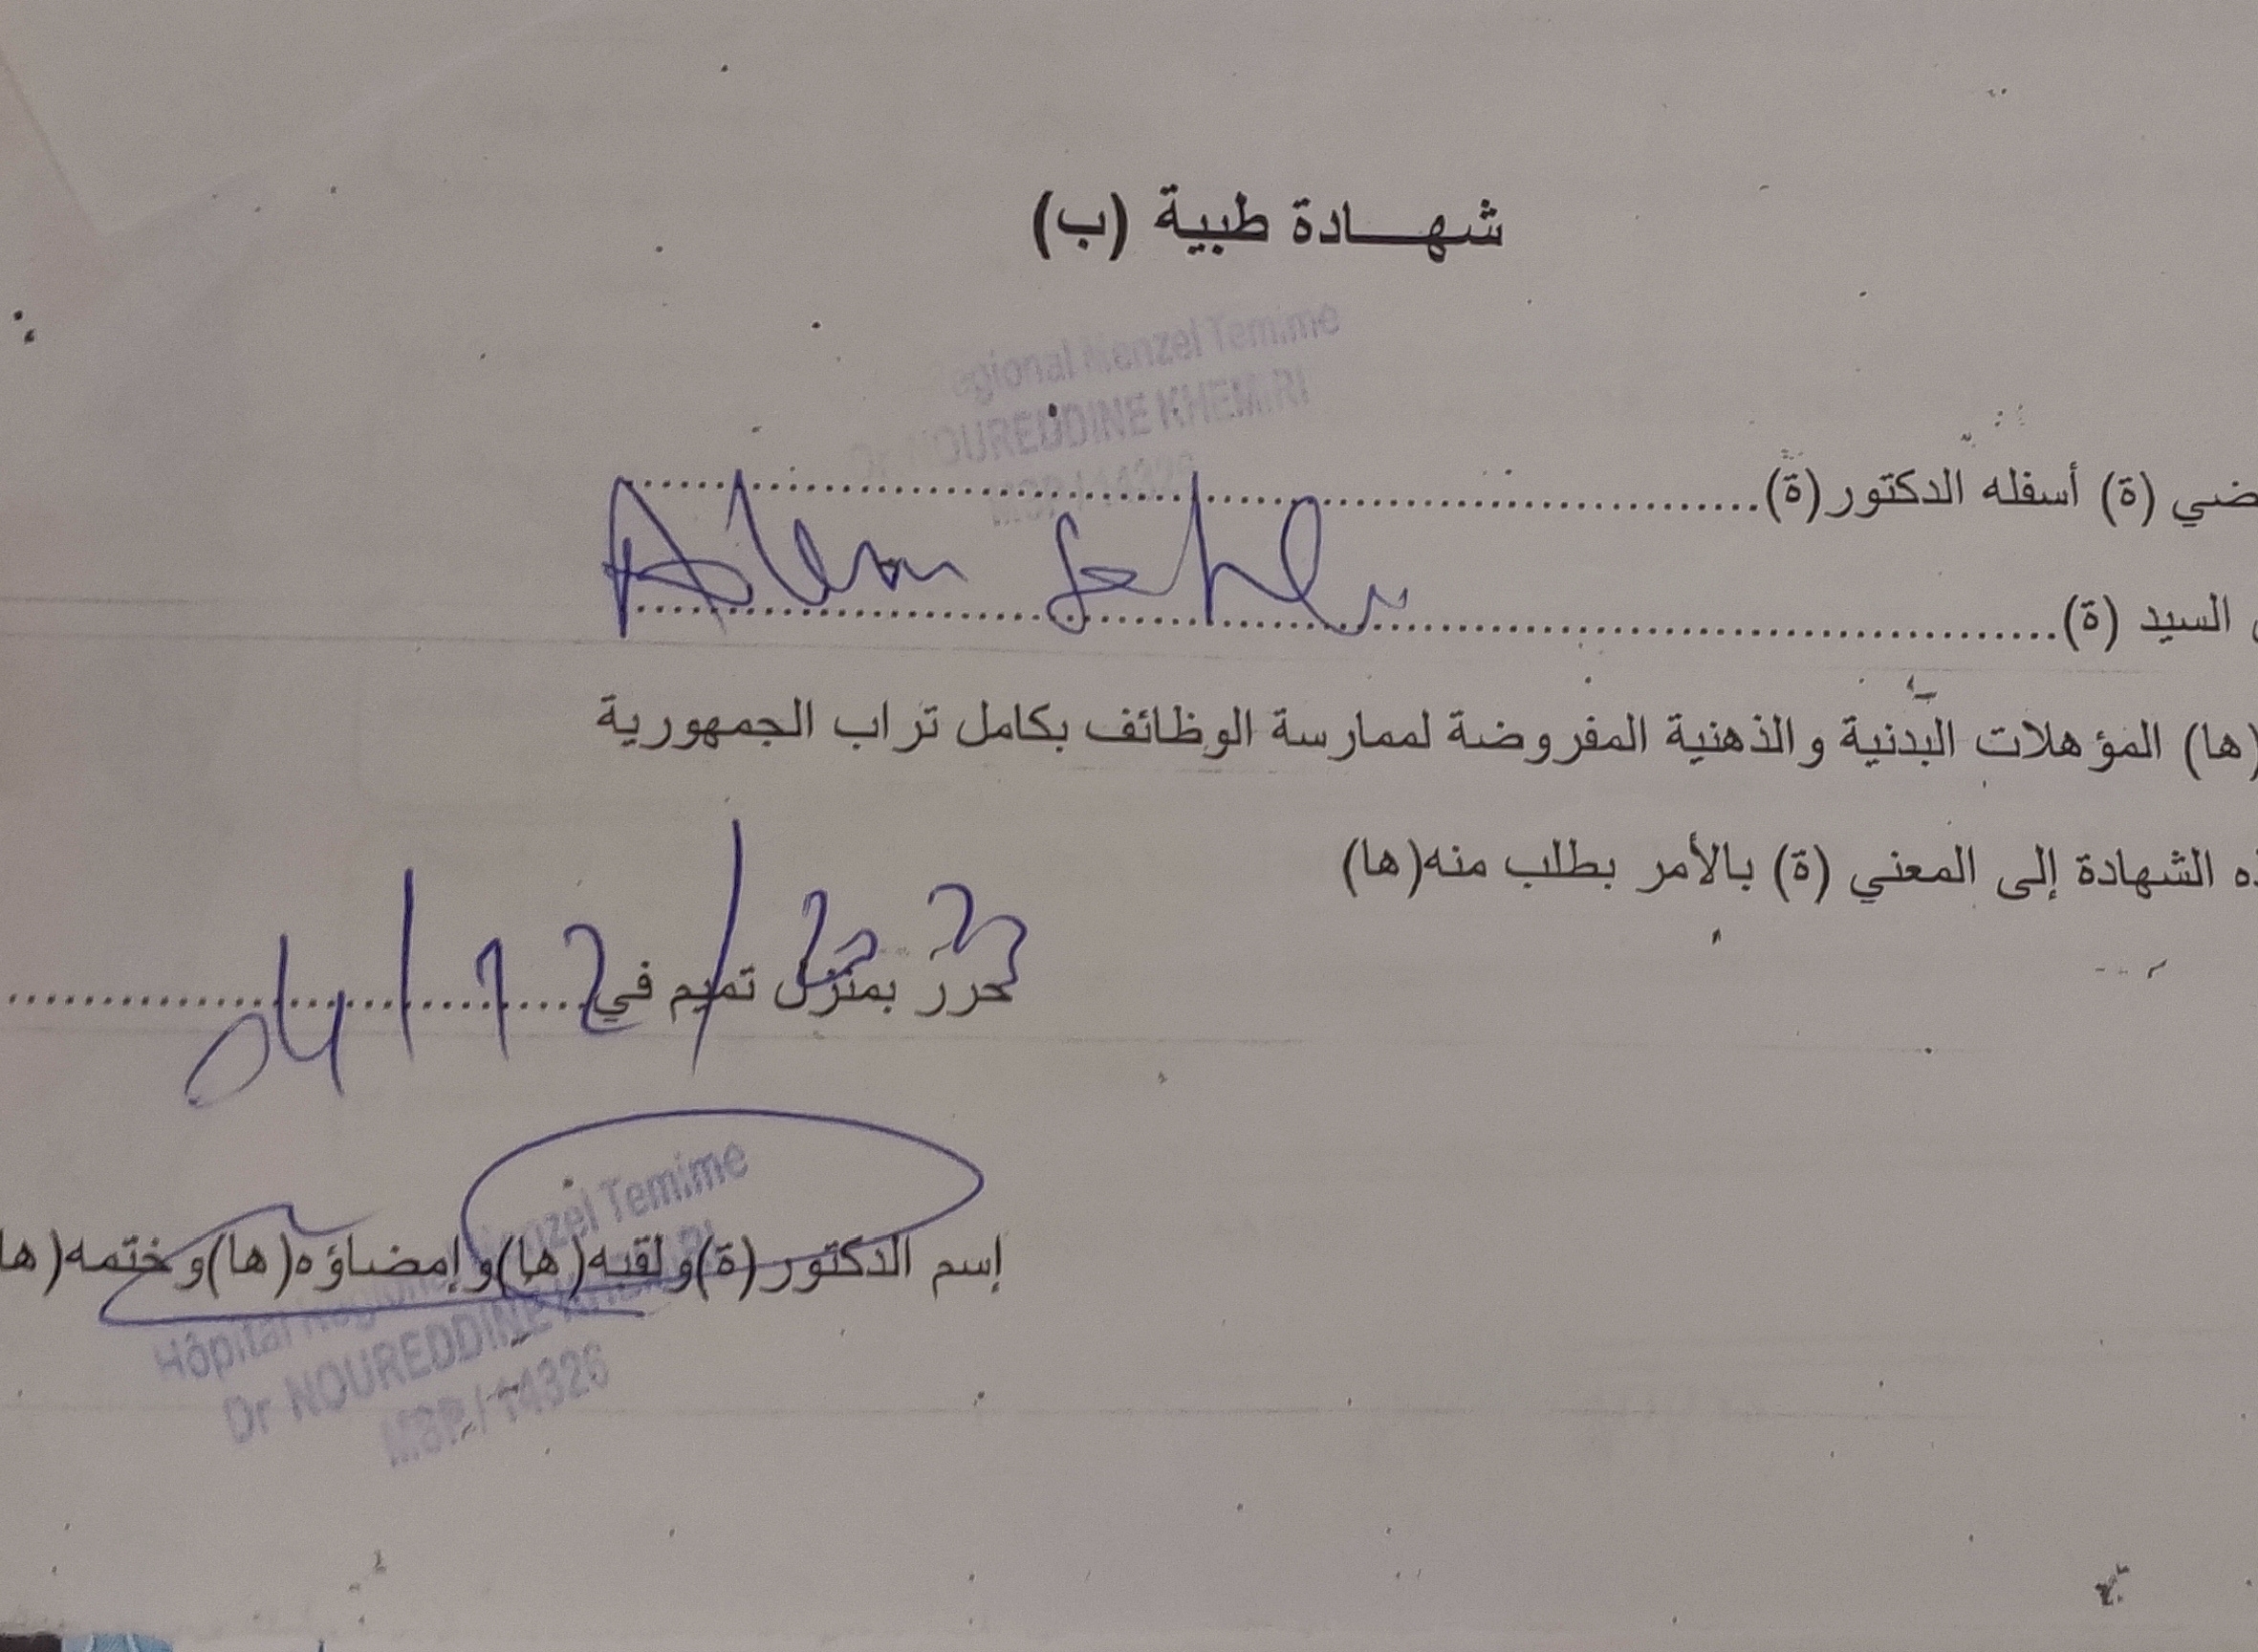 شهادة طبية (ب)
egional Menzel Temime
Dr NOUREDDINE KHEMIRI
MSP / 14326
ضي (ة) أسفله الدكتور(ة)
السيد (ة)
(ها) المؤهلات البدنية والذهنية المفروضة لممارسة الوظائف بكامل تراب الجمهورية
ه الشهادة إلى المعني (ة) بالأمر بطلب منه(ها)
حرر بمنزل تميم في 04/12/2023
إسم الدكتور(ة)ولقبه(ها)وإمضاؤه(ها)وختمه(ها
Hôpital Régional Menzel Temime
Dr NOUREDDINE KHEMIRI
MSP / 14326